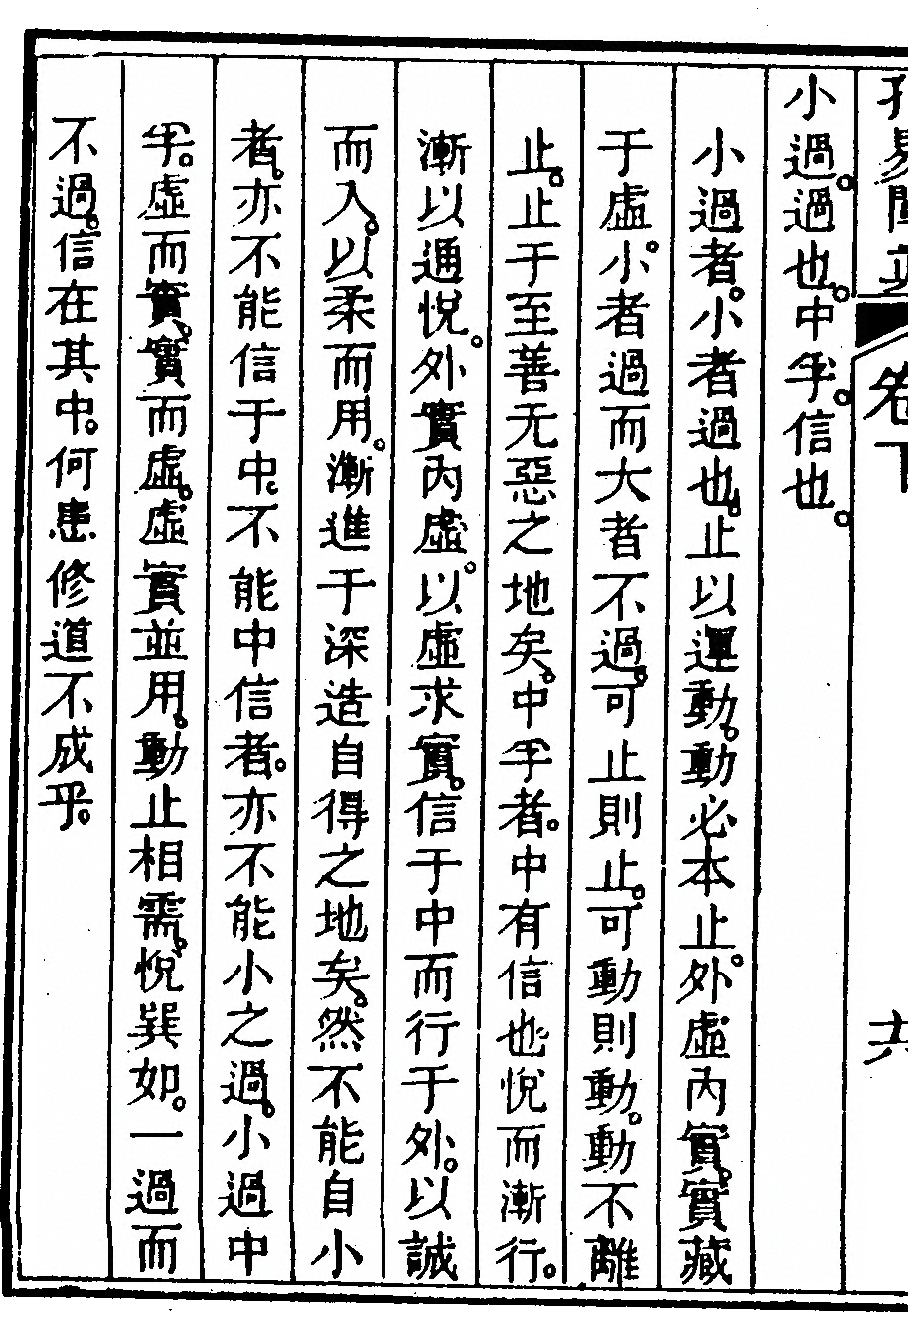 孔易闡真 卷下 六
小過。過也。中孚。信也。
小過者。小者過也。止以運動。動必本止。外虛內實。實藏
于虛。小者過而大者不過。可止則止。可動則動。動不離
止。止于至善无惡之地矣。中孚者。中有信也悅而漸行。
漸以通悅。外實內虛。以虛求實。信于中而行于外。以誠
而入。以柔而用。漸進于深造自得之地矣。然不能自小
者。亦不能信于中。不能中信者。亦不能小之過。小過中
孚。虛而實。實而虛。虛實並用。動止相需。悅巽如。一過而
不過。信在其中。何患修道不成乎。